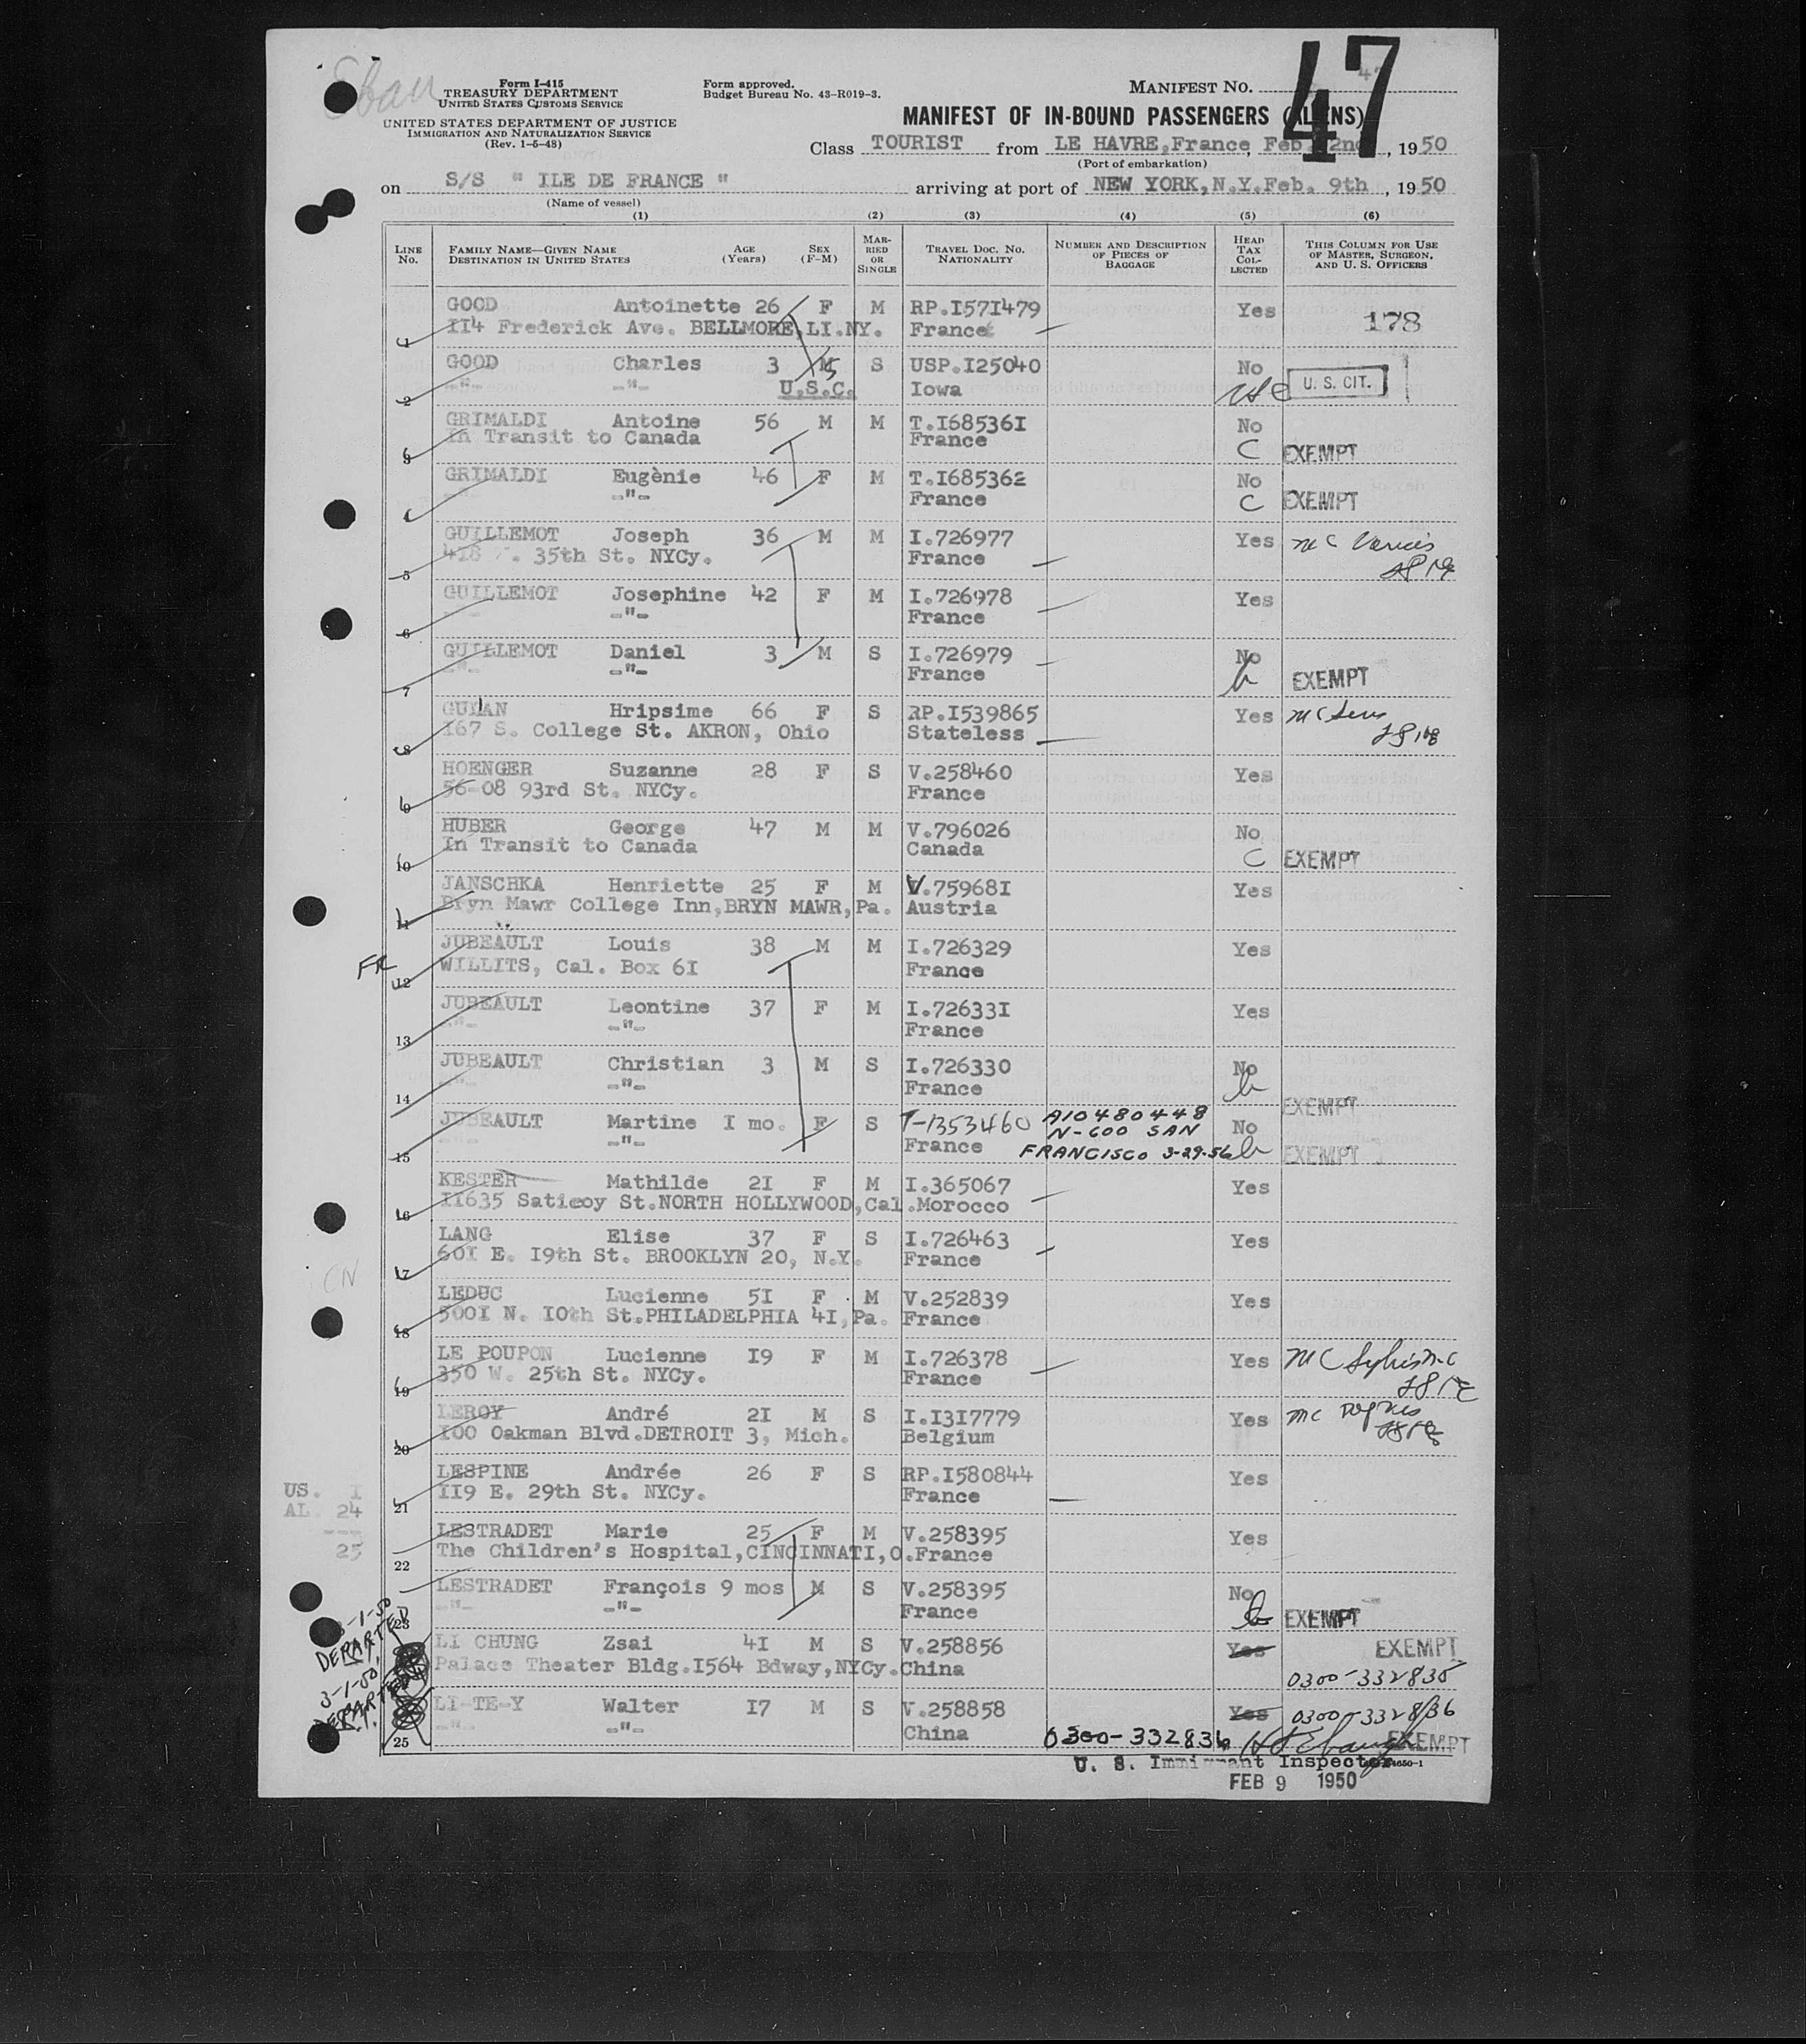 Form I-415
TREASURY DEPARTMENT
UNITED STATES CUSTOMS SERVICE
UNITED STATES DEPARTMENT OF JUSTICE
IMMIGRATION AND NATURALIZATION SERVICE
(Rev. 1-5-48)
Form approved.
Budget Bureau No. 43-R019-3.
MANIFEST NO. 47
MANIFEST OF IN-BOUND PASSENGERS (ALIENS)
Class TOURIST from LE HAVRE, France, Feb. 2nd, 1950
(Port of embarkation)
on S/S " ILE DE FRANCE " arriving at port of NEW YORK, N.Y. Feb. 9th, 1950
(Name of vessel)
(1) (2) (3) (4) (5) (6)
LINE No. FAMILY NAME—GIVEN NAME DESTINATION IN UNITED STATES AGE (Years) SEX (F-M) MARRIED OR SINGLE TRAVEL DOC. NO. NATIONALITY NUMBER AND DESCRIPTION OF PIECES OF BAGGAGE HEAD TAX COLLECTED THIS COLUMN FOR USE OF MASTER, SURGEON, AND U. S. OFFICERS
GOOD Antoinette 26 F M RP.I571479 Yes
1 114 Frederick Ave. BELLMORE, LI.NY. France 178
GOOD Charles 3 M S USP.I25040 No
2 -"- -"- U.S.C. Iowa USC U. S. CIT.
GRIMALDI Antoine 56 M M T.I68536I No
3 In Transit to Canada France C EXEMPT
GRIMALDI Eugènie 46 F M T.I685362 No
4 -"- France C EXEMPT
GUILLEMOT Joseph 36 M M I.726977 Yes
5 35th St. NYCy. France
GUILLEMOT Josephine 42 F M I.726978 Yes
6 -"- France
GUILLEMOT Daniel 3 M S I.726979 No
7 -"- -"- France b EXEMPT
Hripsime 66 F S RP.I539865 Yes
8 I67 S. College St. AKRON, Ohio Stateless
HOENGER Suzanne 28 F S V.258460 Yes
9 56-08 93rd St. NYCy. France
HUBER George 47 M M V.796026 No
10 In Transit to Canada Canada C EXEMPT
JANSCHKA Henriette 25 F M V.75968I Yes
11 Bryn Mawr College Inn, BRYN MAWR, Pa. Austria
JUBEAULT Louis 38 M M I.726329 Yes
FR 12 WILLITS, Cal. Box 6I France
JUBEAULT Leontine 37 F M I.72633I Yes
13 -"- -"- France
JUBEAULT Christian 3 M S I.726330 No
14 -"- -"- France b EXEMPT
JUBEAULT Martine I mo. F S T-1353460 A10480448 No
15 -"- -"- France N-600 SAN FRANCISCO 3-29-56 b EXEMPT
KESTER Mathilde 2I F M I.365067 Yes
16 II635 Saticoy St. NORTH HOLLYWOOD, Cal. Morocco
LANG Elise 37 F S I.726463 Yes
17 60I E. I9th St. BROOKLYN 20, N.Y. France
LEDUC Lucienne 5I F M V.252839 Yes
18 500I N. IOth St. PHILADELPHIA 4I, Pa. France
LE POUPON Lucienne I9 F M I.726378 Yes
19 350 W. 25th St. NYCy. France
LEROY André 2I M S I.I3I7779 Yes
20 I00 Oakman Blvd. DETROIT 3, Mich. Belgium
LESPINE Andrée 26 F S RP.I580844 Yes
21 II9 E. 29th St. NYCy. France
US. I
AL. 24
---
25
LESTRADET Marie 25 F M V.258395 Yes
22 The Children's Hospital, CINCINNATI, O. France
LESTRADET François 9 mos M S V.258395 No
23 -"- -"- France b EXEMPT
LI CHUNG Zsai 4I M S V.258856 Yes EXEMPT
Palace Theater Bldg. I564 Bdway, NYCy. China 0300-332835
3-1-50 DEPARTED
LI-TE-Y Walter I7 M S V.258858 Yes 0300-332836
25 -"- -"- China 0300-332836 EXEMPT
3-1-50 DEPARTED
U. S. Immigrant Inspector
FEB 9 1950